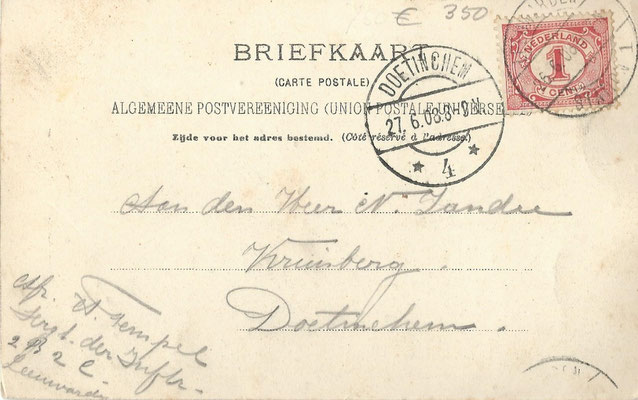 € 350
BRIEFKAART
(CARTE POSTALE)
ALGEMEENE POSTVEREENIGING (UNION POSTALE UNIVERSE
Zijde voor het adres bestemd. (Côté réservé à l'adresse.)
NEDERLAND
1
CENT
DOETINCHEM
27.6.08.8-9N
4
Aan den Heer N. Jandee
Kruisberg
Doetinchem.
Afz. H. Tempel
Sergt. der Inftr.
2 B 2 C.
Leeuwarden